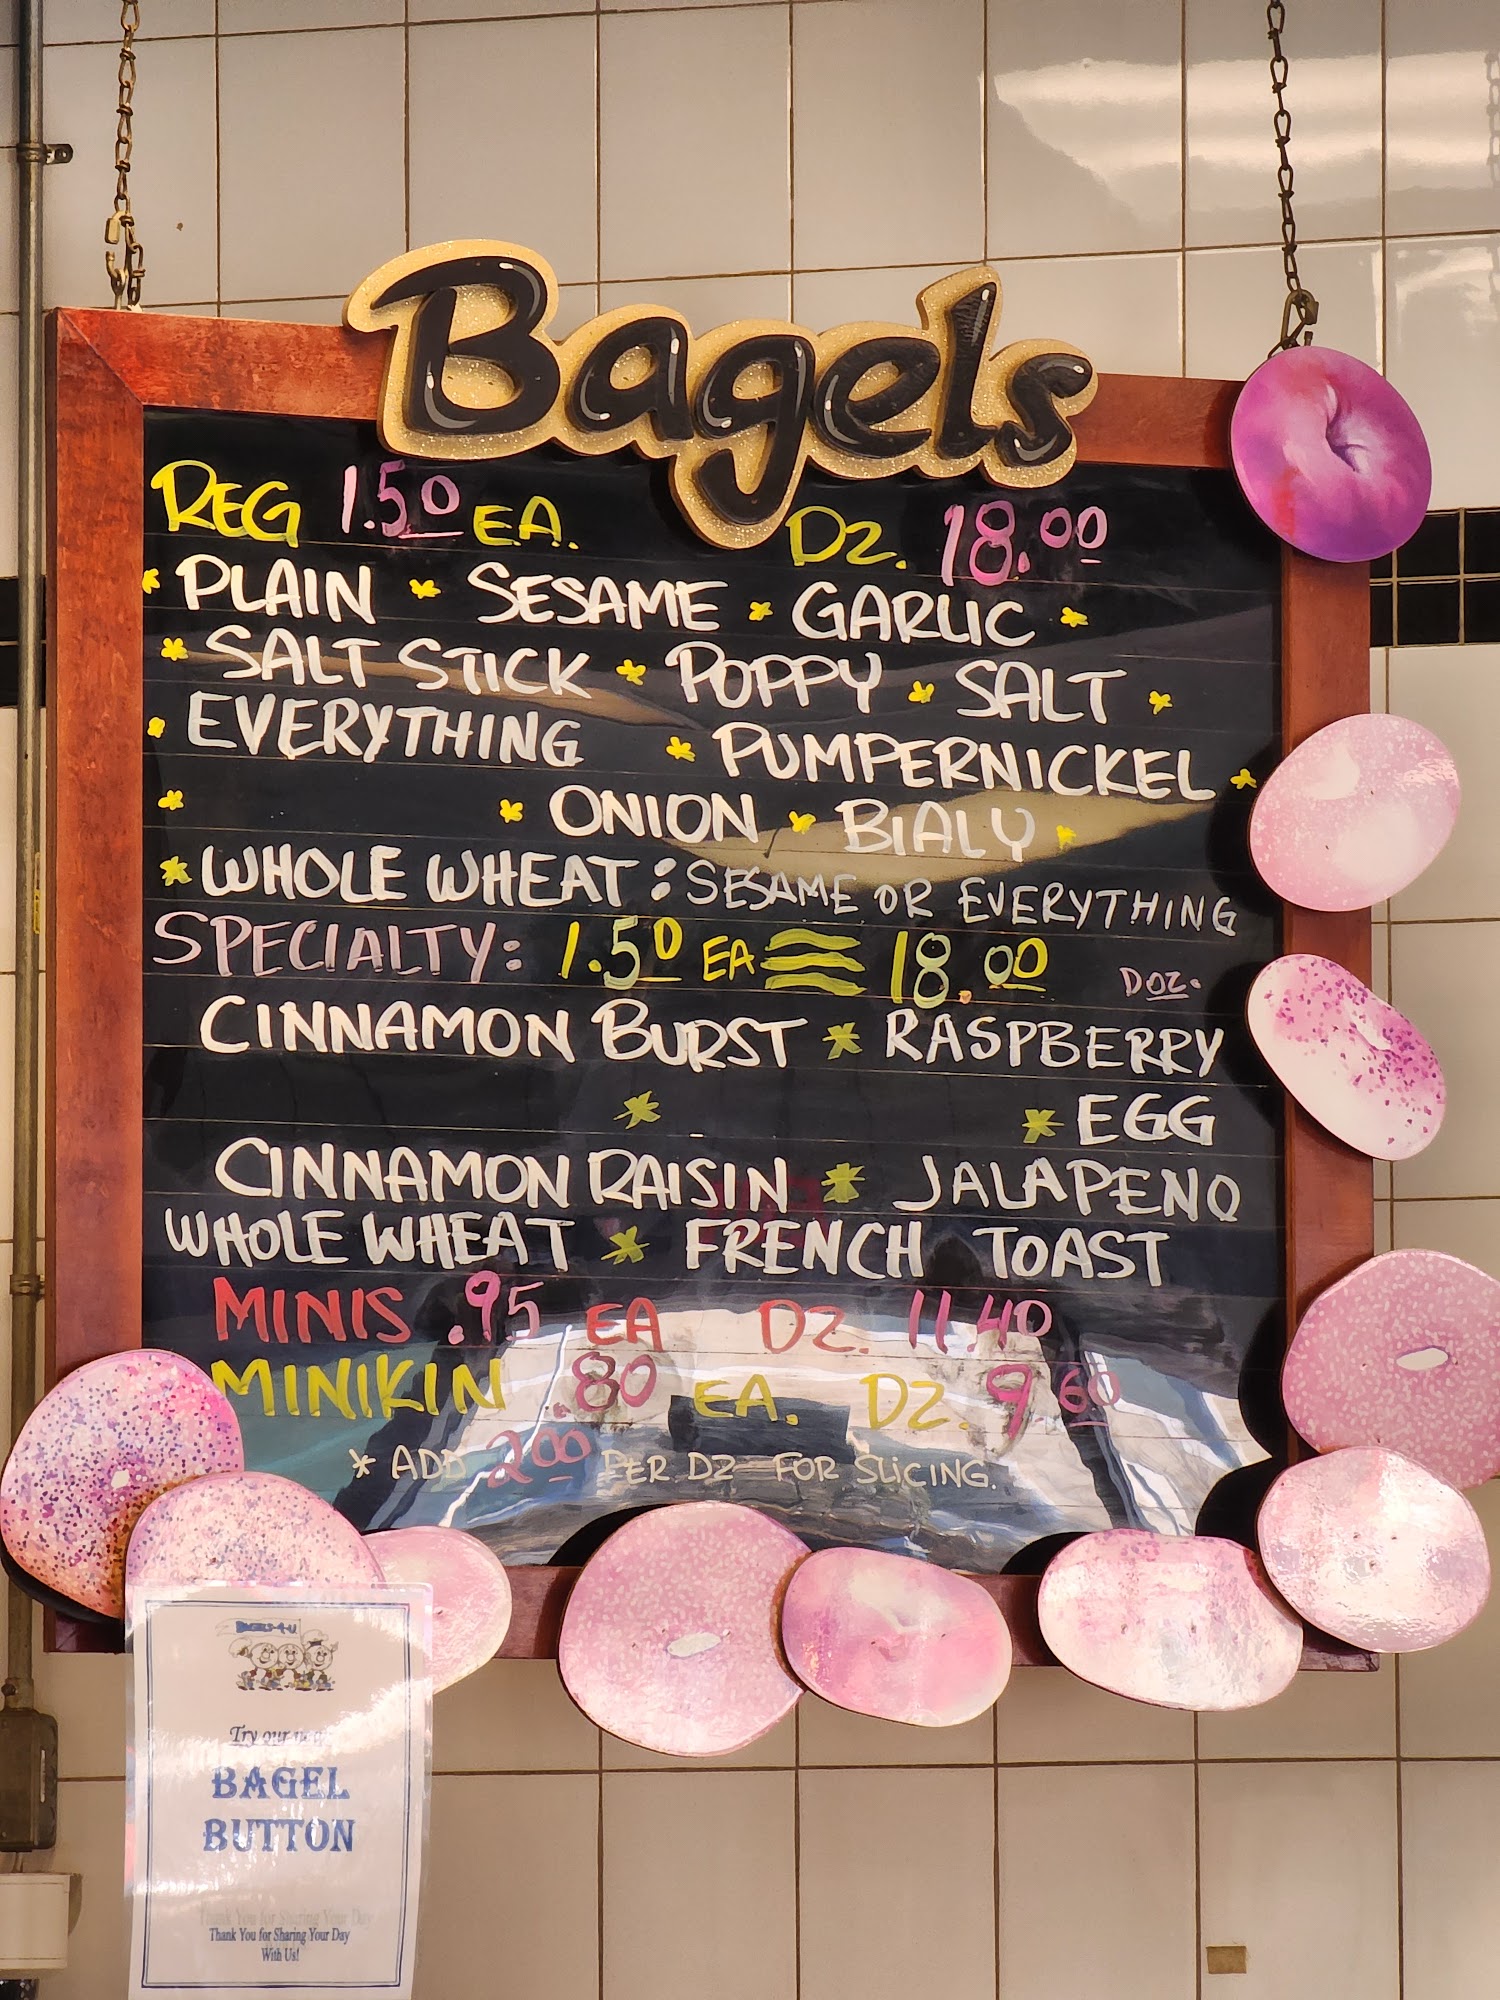 Bagels
REG 1.50 EA. DZ. 18.00
* PLAIN * SESAME * GARLIC *
* SALT STICK * POPPY * SALT *
* EVERYTHING * PUMPERNICKEL *
* * ONION * BIALY *
* WHOLE WHEAT : SESAME OR EVERYTHING
SPECIALTY: 1.50 EA 18.00 DOZ.
CINNAMON BURST * RASPBERRY
* * EGG
CINNAMON RAISIN * JALAPENO
WHOLE WHEAT * FRENCH TOAST
MINIS .95 EA DZ. 11.40
MINIKIN .80 EA. DZ. 9 60
* ADD 2.00 PER DZ FOR SLICING.
BAGELS-4-U
Try our new
BAGEL
BUTTON
Thank You for Sharing Your Day
Thank You for Sharing Your Day
With Us!